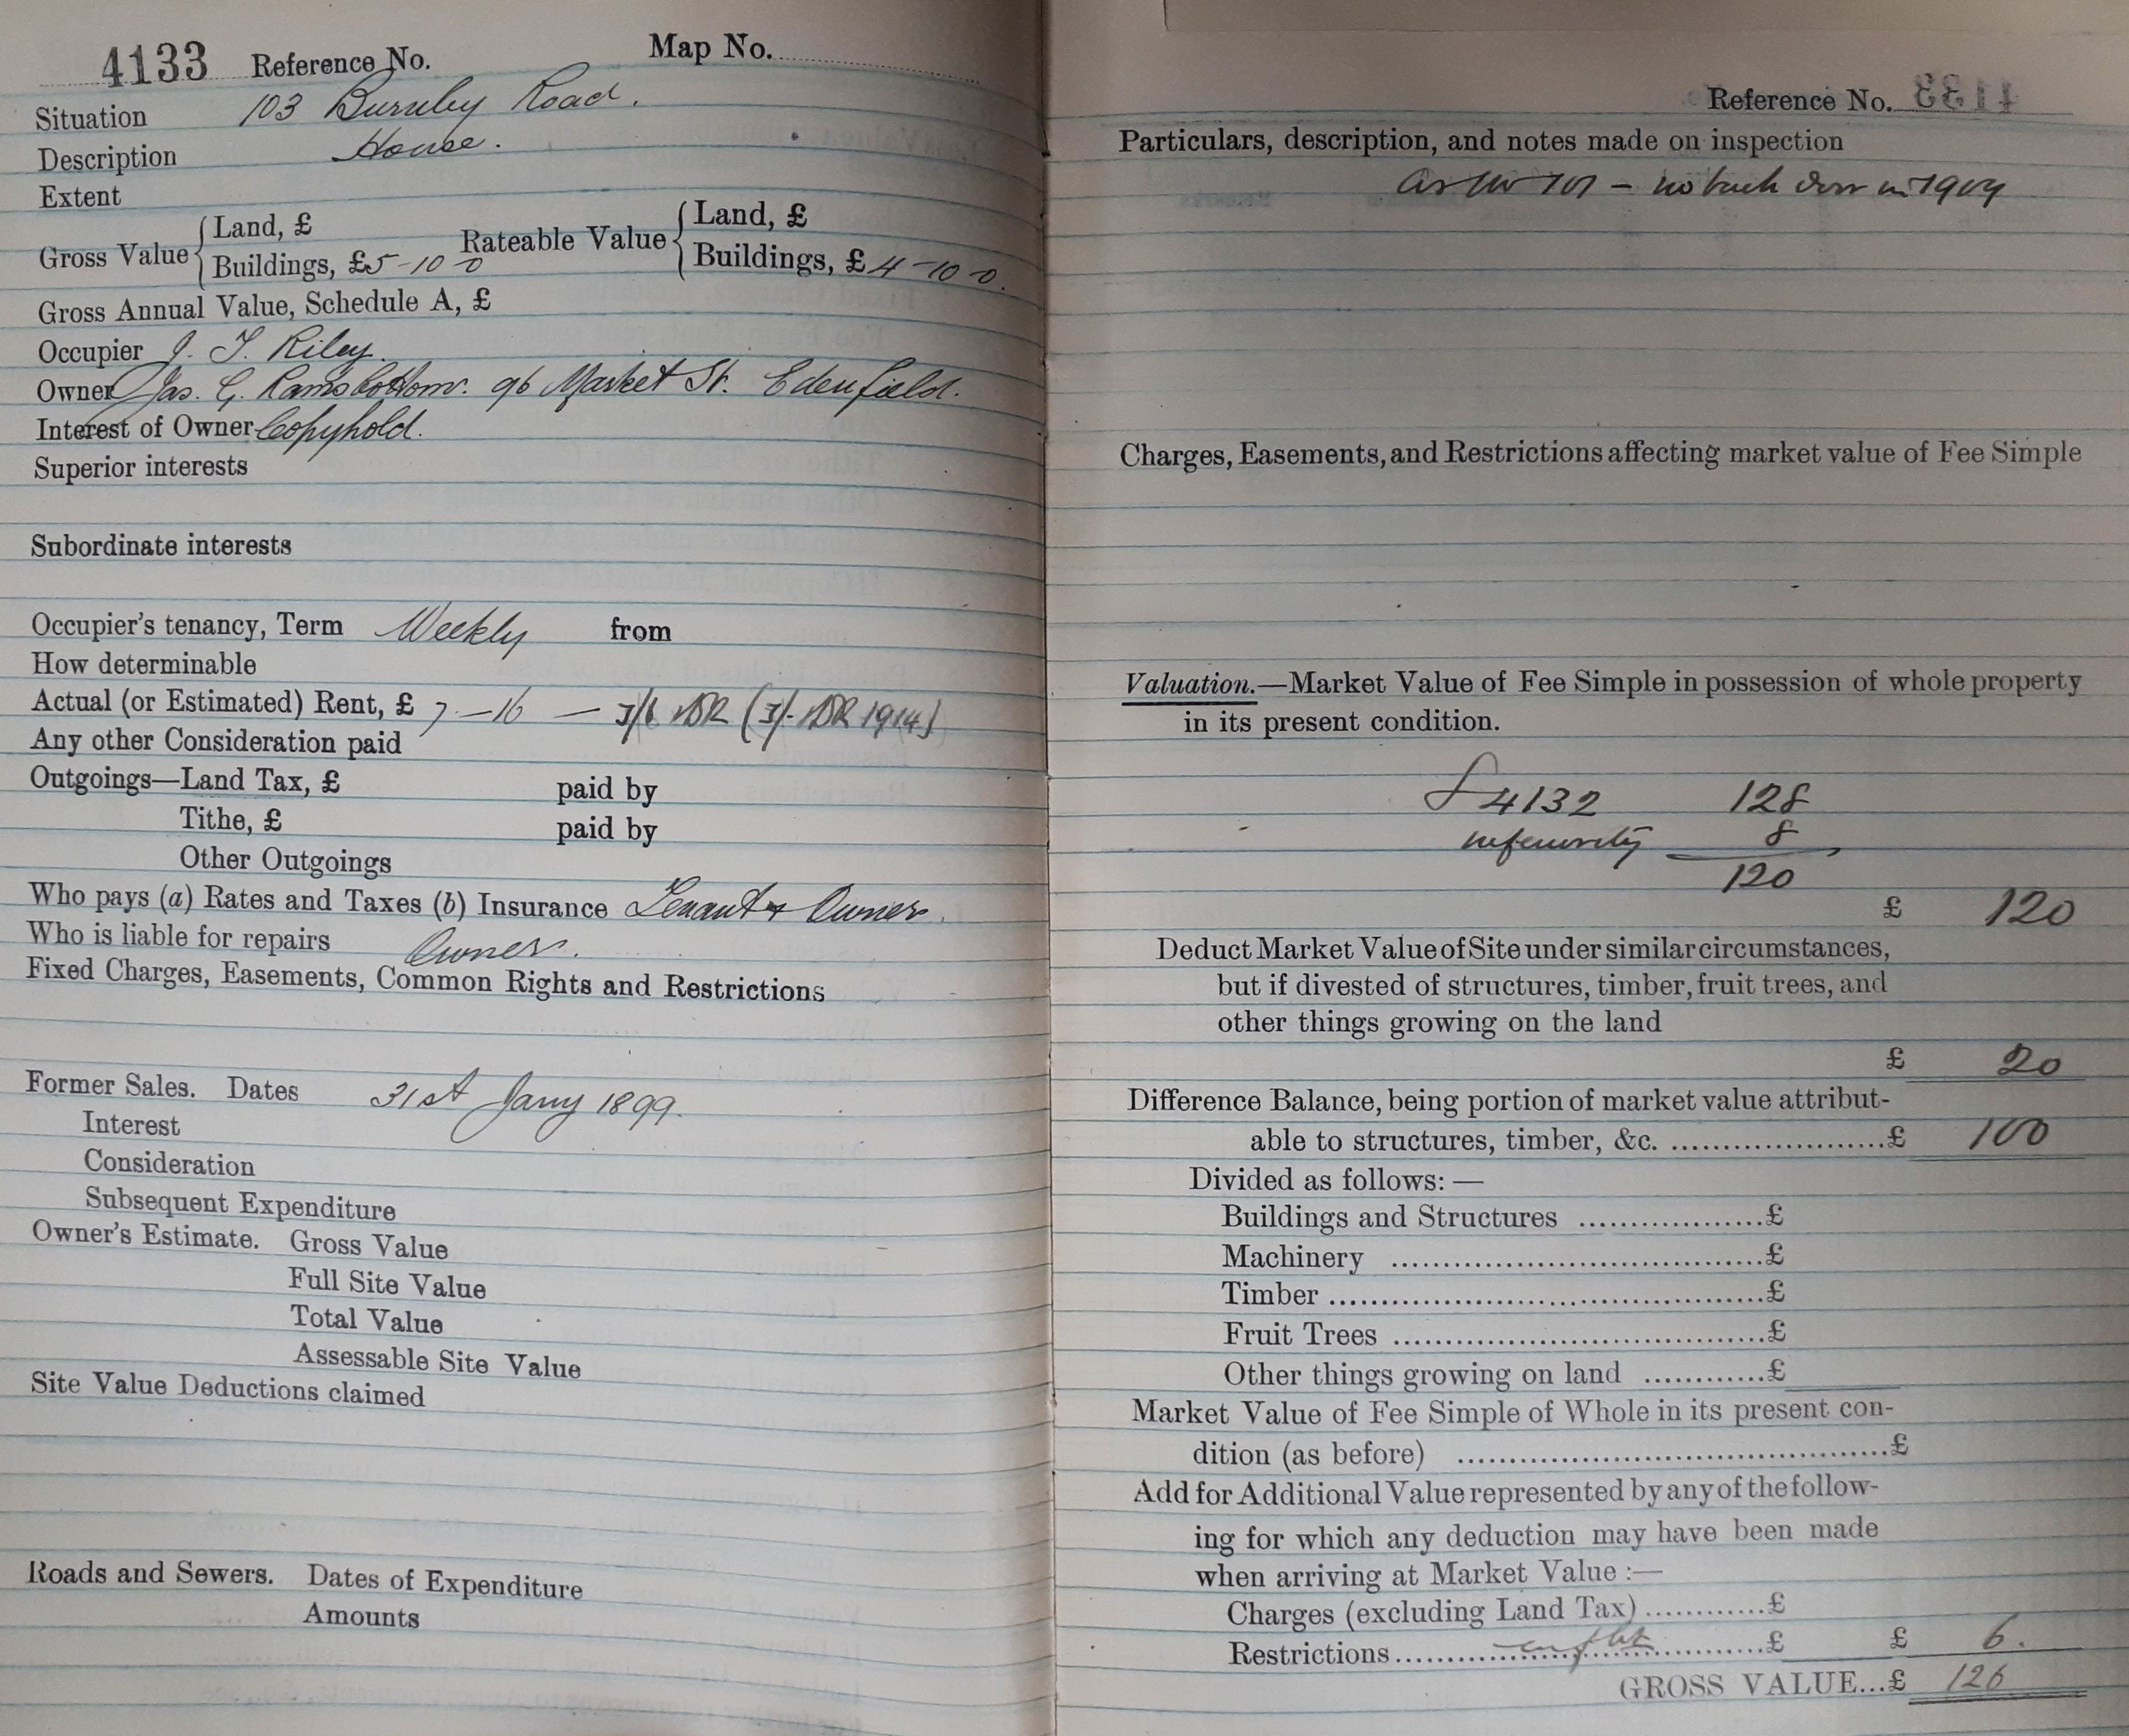 4133 Reference No. Map No.
Situation 103 Burnley Road.
Description House.
Extent
Gross Value { Land, £
Buildings, £5-10-0
Rateable Value { Land, £
Buildings, £4-10-0.
Gross Annual Value, Schedule A, £
Occupier J. T. Riley.
Owner Jas. G. Ramsbottom. 96 Market St. Edenfield.
Interest of Owner Copyhold.
Superior interests
Subordinate interests
Occupier's tenancy, Term Weekly from
How determinable
Actual (or Estimated) Rent, £ 7-16 — 3/6 DR (3/- DR 1914)
Any other Consideration paid
Outgoings—Land Tax, £ paid by
Tithe, £ paid by
Other Outgoings
Who pays (a) Rates and Taxes (b) Insurance Tenant & Owner.
Who is liable for repairs Owner.
Fixed Charges, Easements, Common Rights and Restrictions
Former Sales. Dates 31st Jany 1899.
Interest
Consideration
Subsequent Expenditure
Owner's Estimate. Gross Value
Full Site Value
Total Value
Assessable Site Value
Site Value Deductions claimed
Roads and Sewers. Dates of Expenditure
Amounts
Reference No. 4133
Particulars, description, and notes made on inspection
as no 101 - no back door in 1909
Charges, Easements, and Restrictions affecting market value of Fee Simple
Valuation.—Market Value of Fee Simple in possession of whole property
in its present condition.
4132 128
inferiority 8
120
£ 120
Deduct Market Value of Site under similar circumstances,
but if divested of structures, timber, fruit trees, and
other things growing on the land
£ 20
Difference Balance, being portion of market value attribut-
able to structures, timber, &c. ......................£ 100
Divided as follows:—
Buildings and Structures ..................£
Machinery .....................................£
Timber ...........................................£
Fruit Trees .....................................£
Other things growing on land ............£
Market Value of Fee Simple of Whole in its present con-
dition (as before) ...........................................£
Add for Additional Value represented by any of the follow-
ing for which any deduction may have been made
when arriving at Market Value :—
Charges (excluding Land Tax)............£
Restrictions....................................£ £ 6.
GROSS VALUE...£ 126